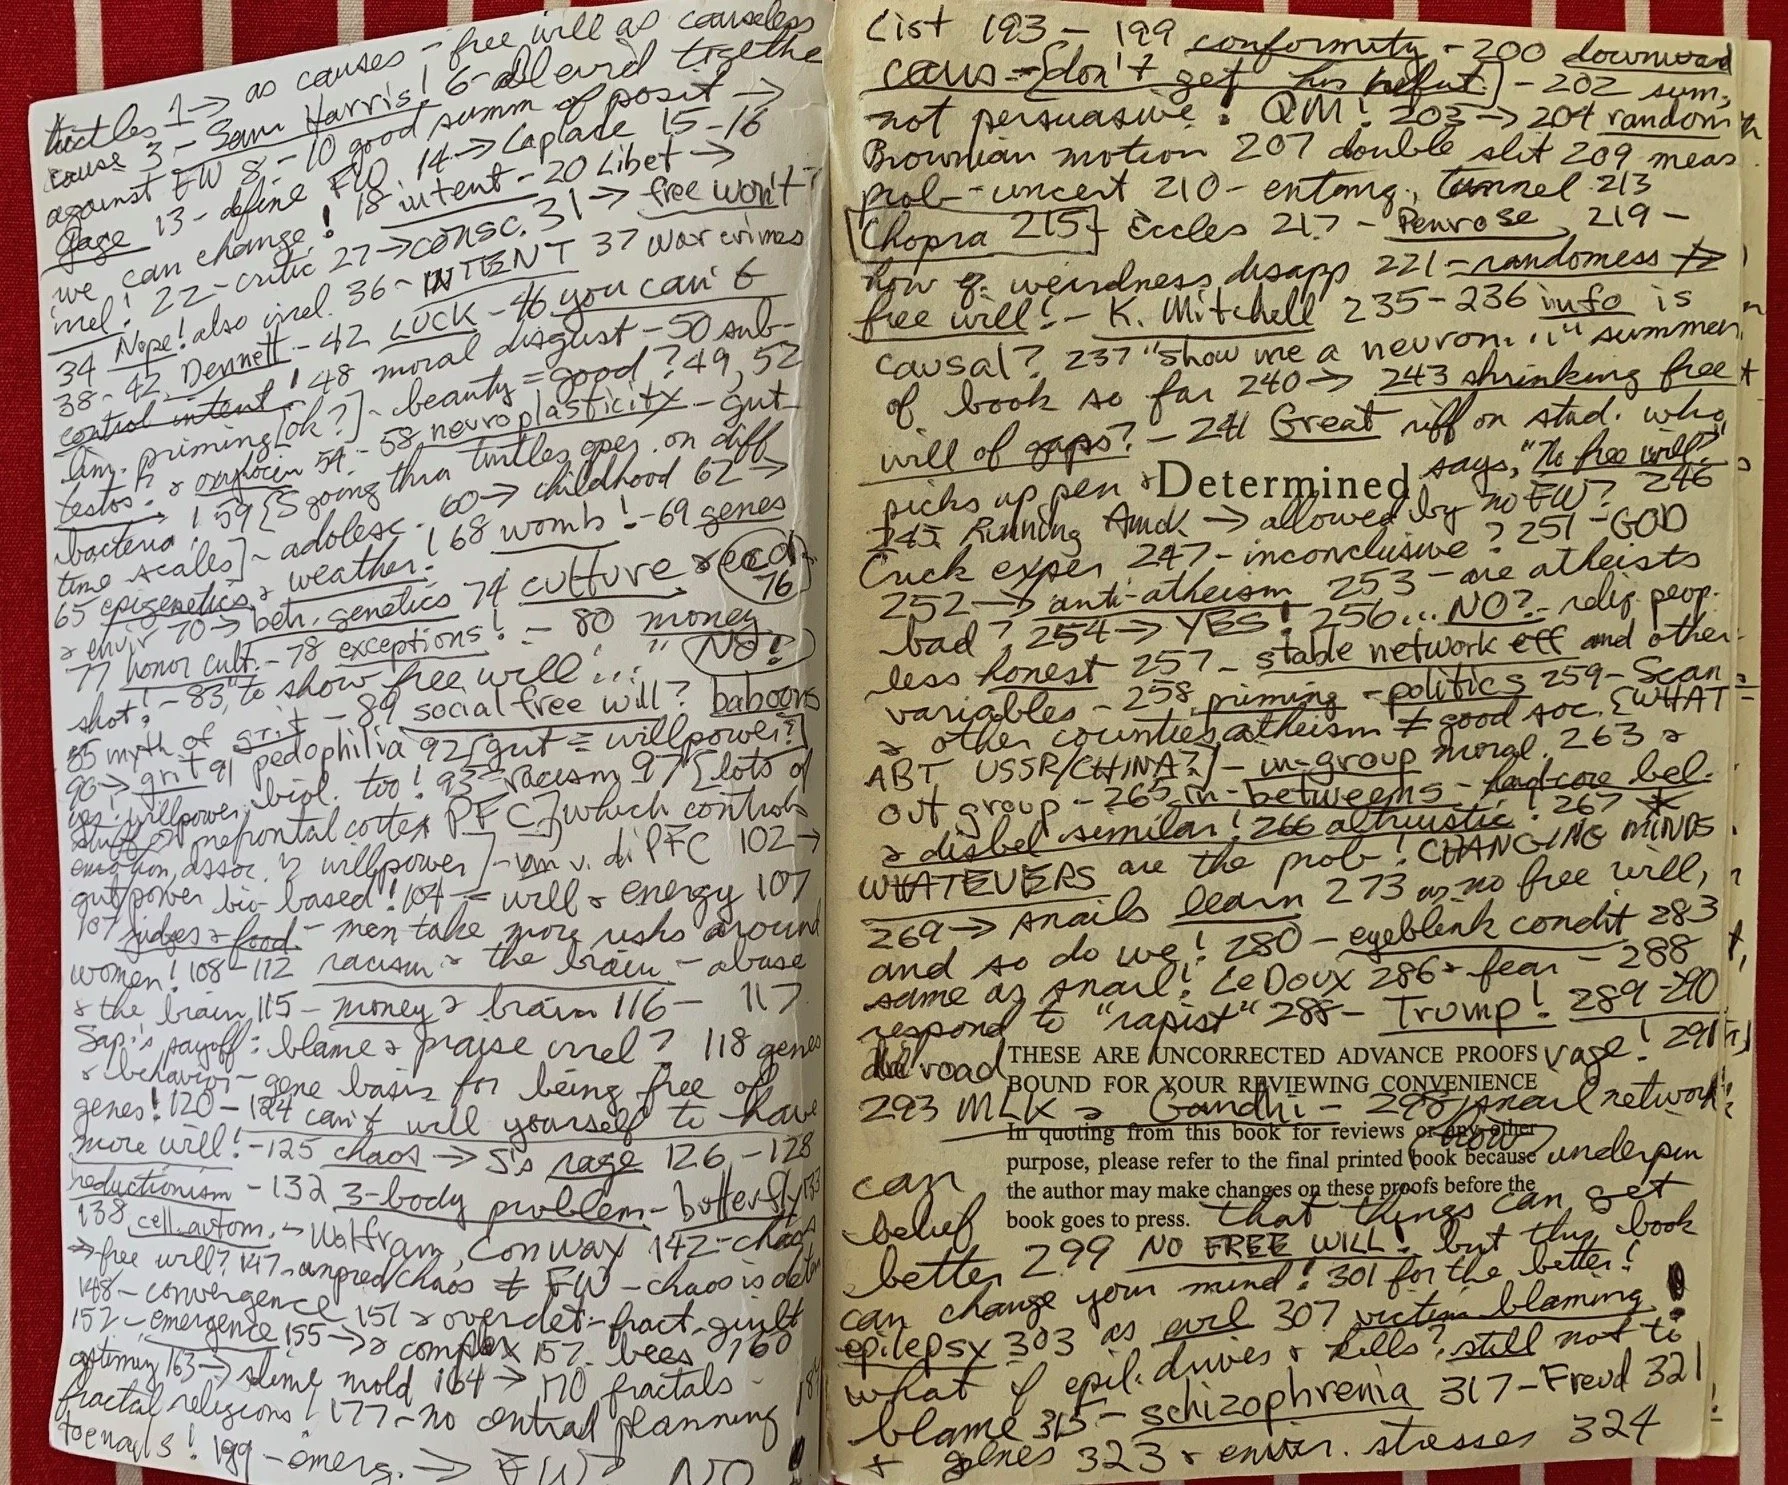 turtles 1→ as causes - free will as causeless
cause 3 - Sam Harris! 6 - all evid togethe
against FW 8 - 10 good summ of posit →
Gage 13 - define FW 14→ Laplace 15-16
we can change! 18 intent - 20 Libet →
irrel! 22 - critic 27→consc. 31→ free won't?
34 Nope! also irrel. 36 - INTENT 37 war crimes
38-42 Dennett - 42 LUCK - 46 you can't
control intent! 48 moral disgust - 50 sub-
lim. priming [ok?] - beauty = good? 49, 52
testos. & oxytocin 54 - 58 neuroplasticity - gut
bacteria! 59 [S going thru turtles oper. on diff
time scales] - adolesc. 60→ childhood 62→
65 epigenetics & weather! 68 womb! - 69 genes
& envir 70→ beh. genetics 74 culture & ecol 76
77 honor cult. - 78 exceptions! - 80 money
shot! - 83 "to show free will..." NO!
85 myth of grit - 89 social free will? baboons
90→ grit 91 pedophilia 92 [gut = willpower?]
yes! willpower biol. too! 93 - racism 97 [lots of
stuff on prefrontal cortex PFC] which controls
emotion, assoc. w willpower] - vm v. dl PFC 102→
gut/power bio-based! 104 - will & energy 107
107 judges & food - men take more risks around
women! 108-112 racism & the brain - abuse
& the brain 115 - money & brain 116 - 117
Sap's payoff: blame & praise irrel? 118 genes
& behavior - gene basis for being free of
genes! 120 - 124 can't will yourself to have
more will! - 125 chaos → S's rage 126 - 128
reductionism - 132 3-body problem - butterfly 133
138 cell. autom. - Wolfram, Conway 142 - chaos
→ free will? 147 - unpred/chaos ≠ FW - chaos is deter
148 - convergence 151 & overdet - fract - guilt
152 - emergence 155→ & complex 157 - bees 160
optimiz 163→ slime mold 164→ 170 fractals -
fractal religions! 177 - no central planning
189 - emerg. → FW? NO!
List 193 - 199 conformity - 200 downward
caus - [don't get his refut.] - 202 sum,
not persuasive! QM! 203→204 random
Brownian motion 207 double slit 209 meas
prob - uncert 210 - entang, tunnel 213
[Chopra 215] Eccles 217 - Penrose 219 -
how q. weirdness disapp 221 - randomess ≠>
free will! - K. Mitchell 235-236 info is
causal? 237 "show me a neuron..." summar
of book so far 240→ 243 shrinking free
will of gaps? - 241 Great riff on stud. who
picks up pen & says, "No free will?"
Determined
245 Running Amok → allowed by no FW? 246
Crick exper 247 - inconclusive? 251 - GOD
252→ anti-atheism 253 - are atheists
bad? 254→ YES! 256... NO? - relig. peop.
less honest 257 - stable network eff and other
variables - 258 priming - politics 259 - Scan
& other counties atheism ≠ good soc. [WHAT
ABT USSR/CHINA?] - in-group moral. 263 &
out group - 265 in-betweens - hardcore bel.
& disbel similar! 266 altruistic! 267 *
WHATEVERS are the prob! CHANGING MINDS
269→ snails learn 273 no free will,
and so do we! 280 - eyeblink condit 283
same as snail! LeDoux 286 & fear - 288
respond to "rapist" 288 - Trump! 289-290
road rage! 291
THESE ARE UNCORRECTED ADVANCE PROOFS
BOUND FOR YOUR REVIEWING CONVENIENCE
293 MLK & Gandhi - 298 snail network
In quoting from this book for reviews or any other
purpose, please refer to the final printed book because
the author may make changes on these proofs before the
book goes to press.
can (now) underpin
belief that things can get
better 299 NO FREE WILL! but this book
can change your mind! 301 for the better!
epilepsy 303 as evil 307 victim blaming!
what if epil. drives & kills? still not to
blame 315 - schizophrenia 317 - Freud 321
& genes 323 & envir. stresses 324